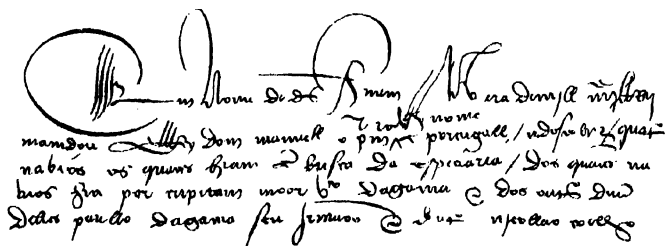 Em Nome de ds Amem Na era de mill iiijc
mandou ellRey dom manuell o pmro deste nome em portugall / a descobrir quatro
nabios os quaes hiam em busca da espeçiaria / dos quaes na
bios hia por capitam moor Vco dagama e dos outros duu
delles paullo dagama seu Jrmaao e do outo nicollao coelho